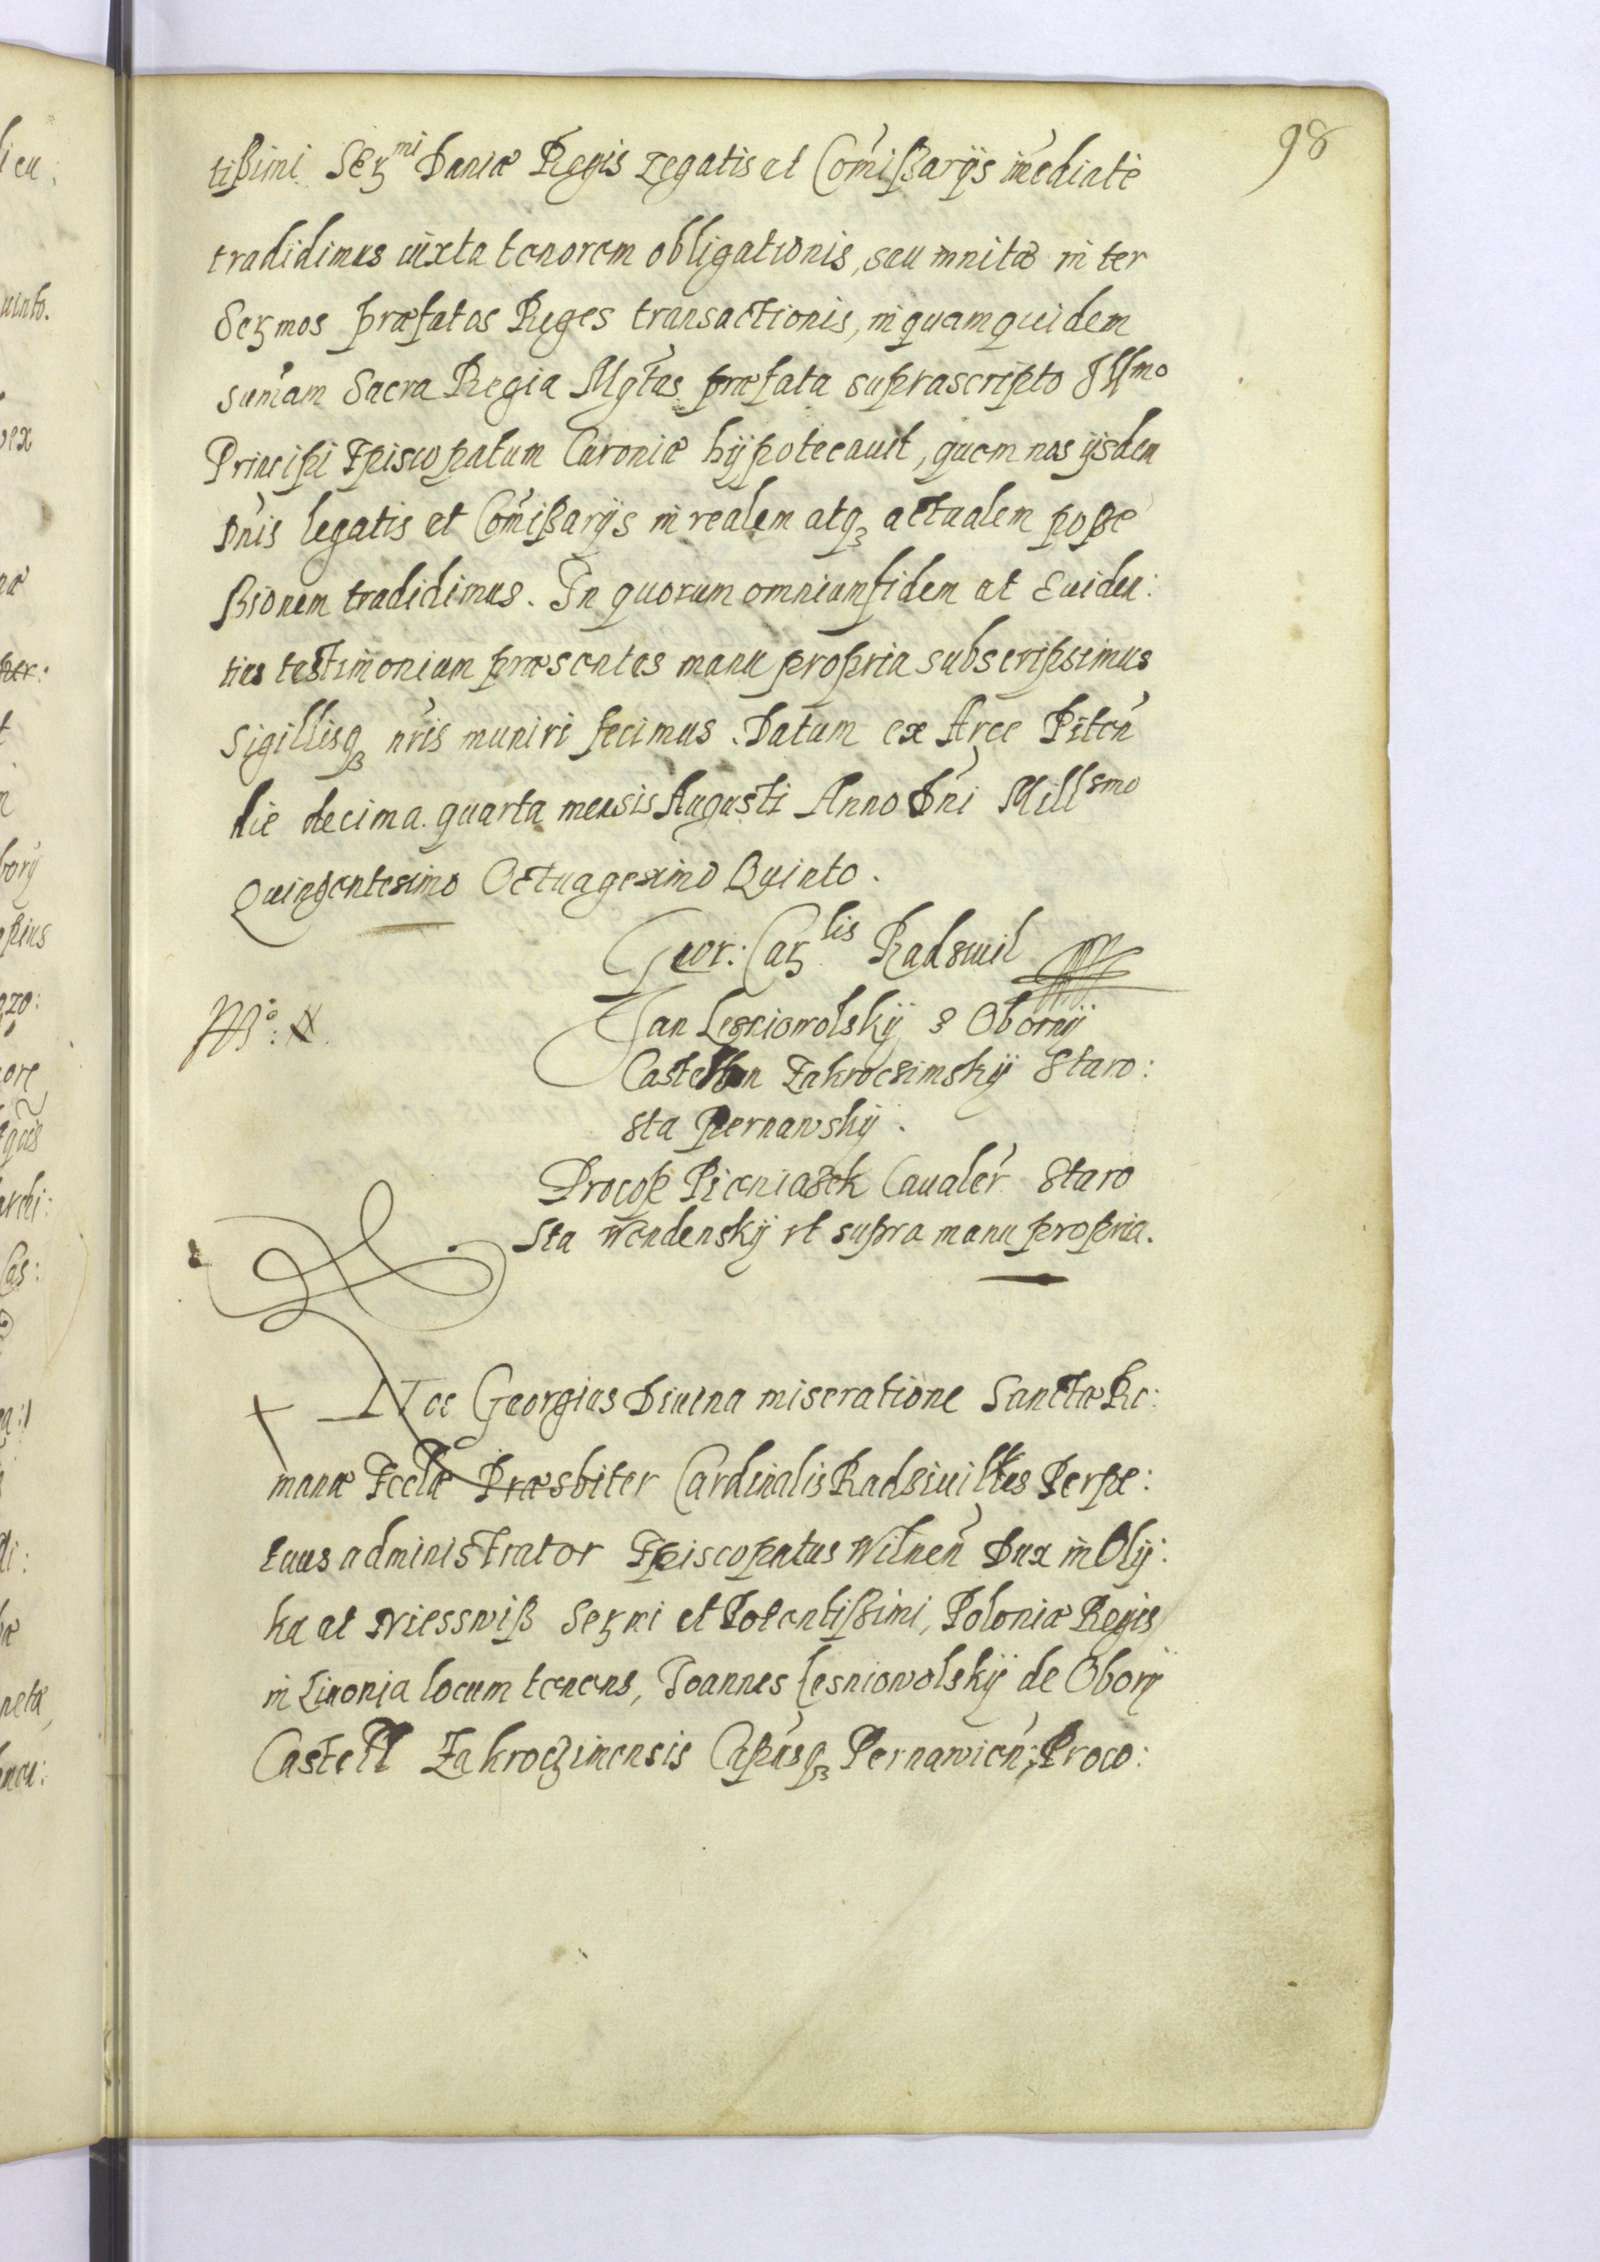 98
tißimi Serᵐⁱ Daniæ Regis Legatis et Com̃ißarijs im̃ediatè
tradidimus iuxta tenorem obligationis, seu initæ inter
Serᵐᵒˢ præfatos Reges transactionis, in quam quidem
sum̃am Sacra Regia Mgt̃as præfata suprascripto Illᵐᵒ
Principi Episcopatum Curoniæ hÿpotecauit, quem nos ijsdem
Dñis legatis et Com̃ißarijs in realem atq₃ actualem poße
ßionem tradidimus. In quorum omnium fidem et Euiden:
tius testimonium præsentes manu propria subscripsimus
Sigillisq₃ nr̃is muniri fecimus. Datum ex Arce Pilten̄
die decima quarta mensis Augusti Anno Dñi Millˢᵐᵒ
Quingentesimo Octuagesimo Quinto.
Geor: Carˡⁱˢ Radswil
Jan Lesniowolskÿ s Oborÿ
Castellan Zakrocsimskÿ Staro:
sta Pernawskÿ.
Procop Pieniasek Caualer̃ Staro
sta Wendenskÿ vt supra manu propria.
Nos Georgius Diuina miseratione Sanctæ Ro:
manæ Eccłæ Præsbiter Cardinalis Radsiuillus Perpe:
tuus administrator Episcopatus Wilnen̄ Dux in Olÿ:
ka et Niesswiß Serᵐⁱ et Potentißimi, Poloniæ Regis
in Liuonia locum tenens, Joannes Lesniowolskÿ de Oborÿ
Castell Zakroczimensis Cap̃usq₃ Pernawien̄, Proco: